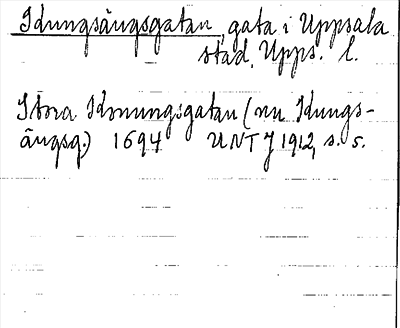 Idungsängsgatan, gata i Uppsala
stad, Upps. l.
Stora Idonungsgatan (nu Idungs-
ängsg.) 1694 UNT J 1912, s. 5.